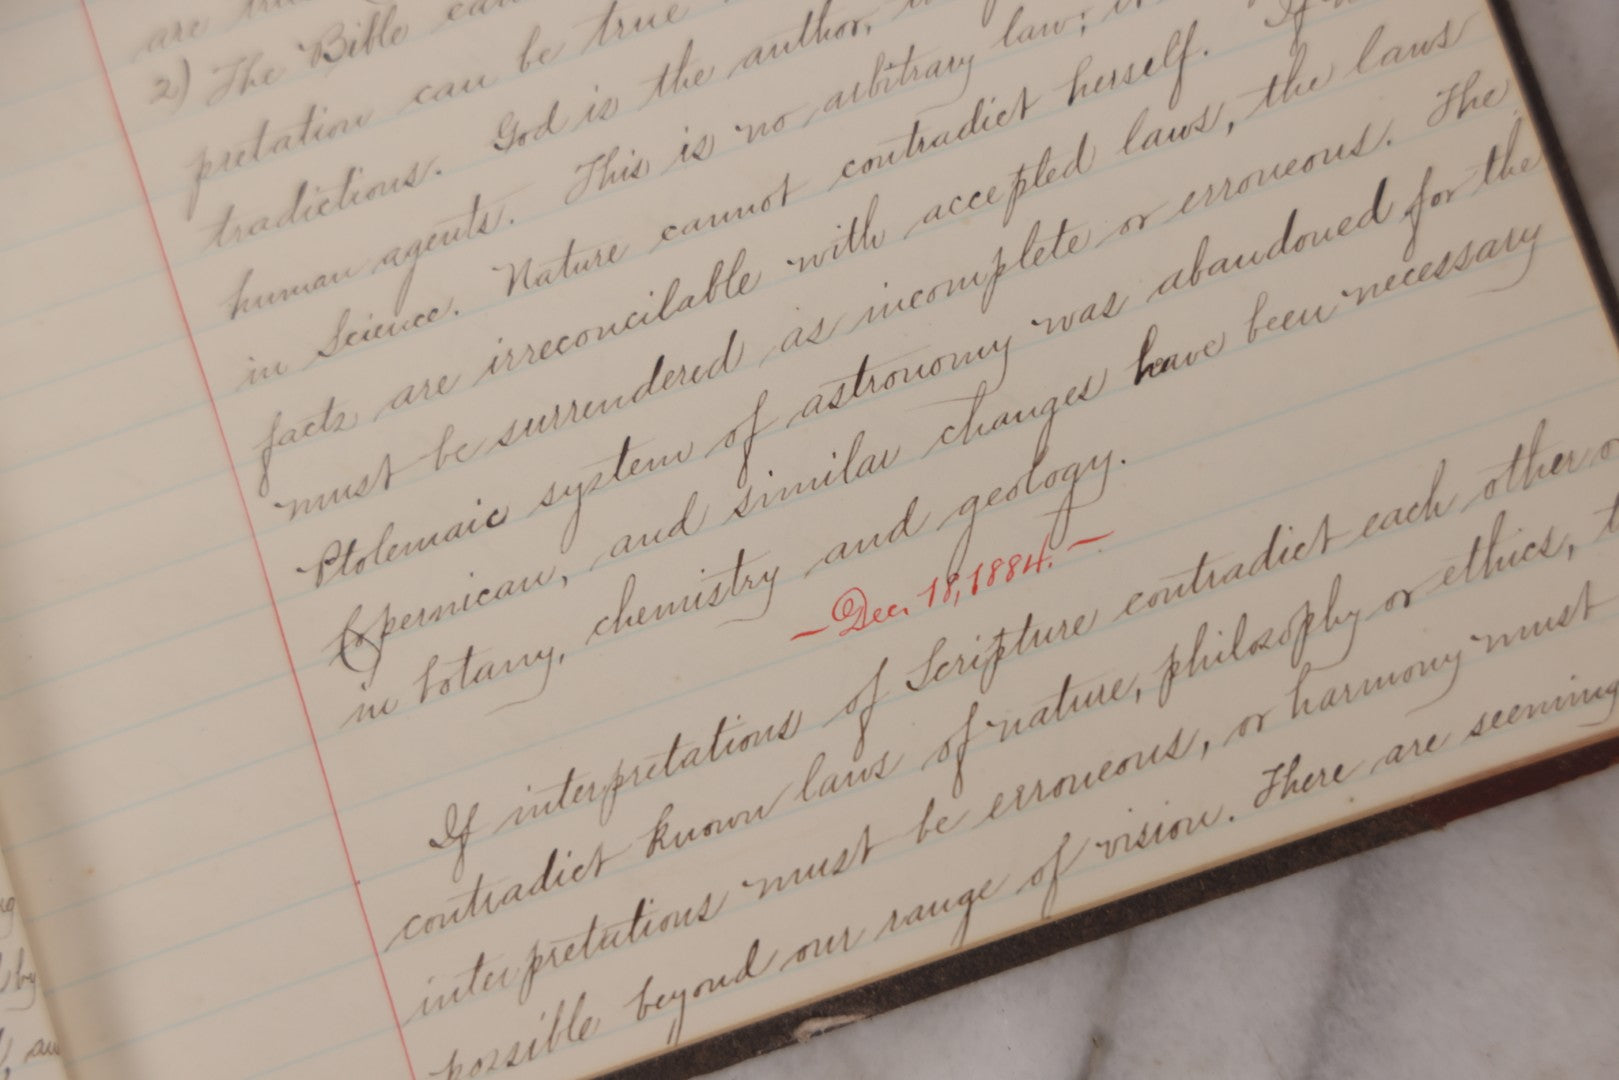 are
2) The Bible
pretation can be true
tradictions. God is the author,
human agents. This is no arbitrary law;
in Science. Nature cannot contradict herself. If
facts are irreconcilable with accepted laws, the laws
must be surrendered as incomplete or erroneous. The
Ptolemaic system of astronomy was abandoned for the
Copernican, and similar changes have been necessary
in botany, chemistry and geology.
— Dec. 18, 1884. —
If interpretations of Scripture contradict each other or
contradict known laws of nature, philosophy or ethics,
interpretations must be erroneous, or harmony must
possible beyond our range of vision. There are seeming
by